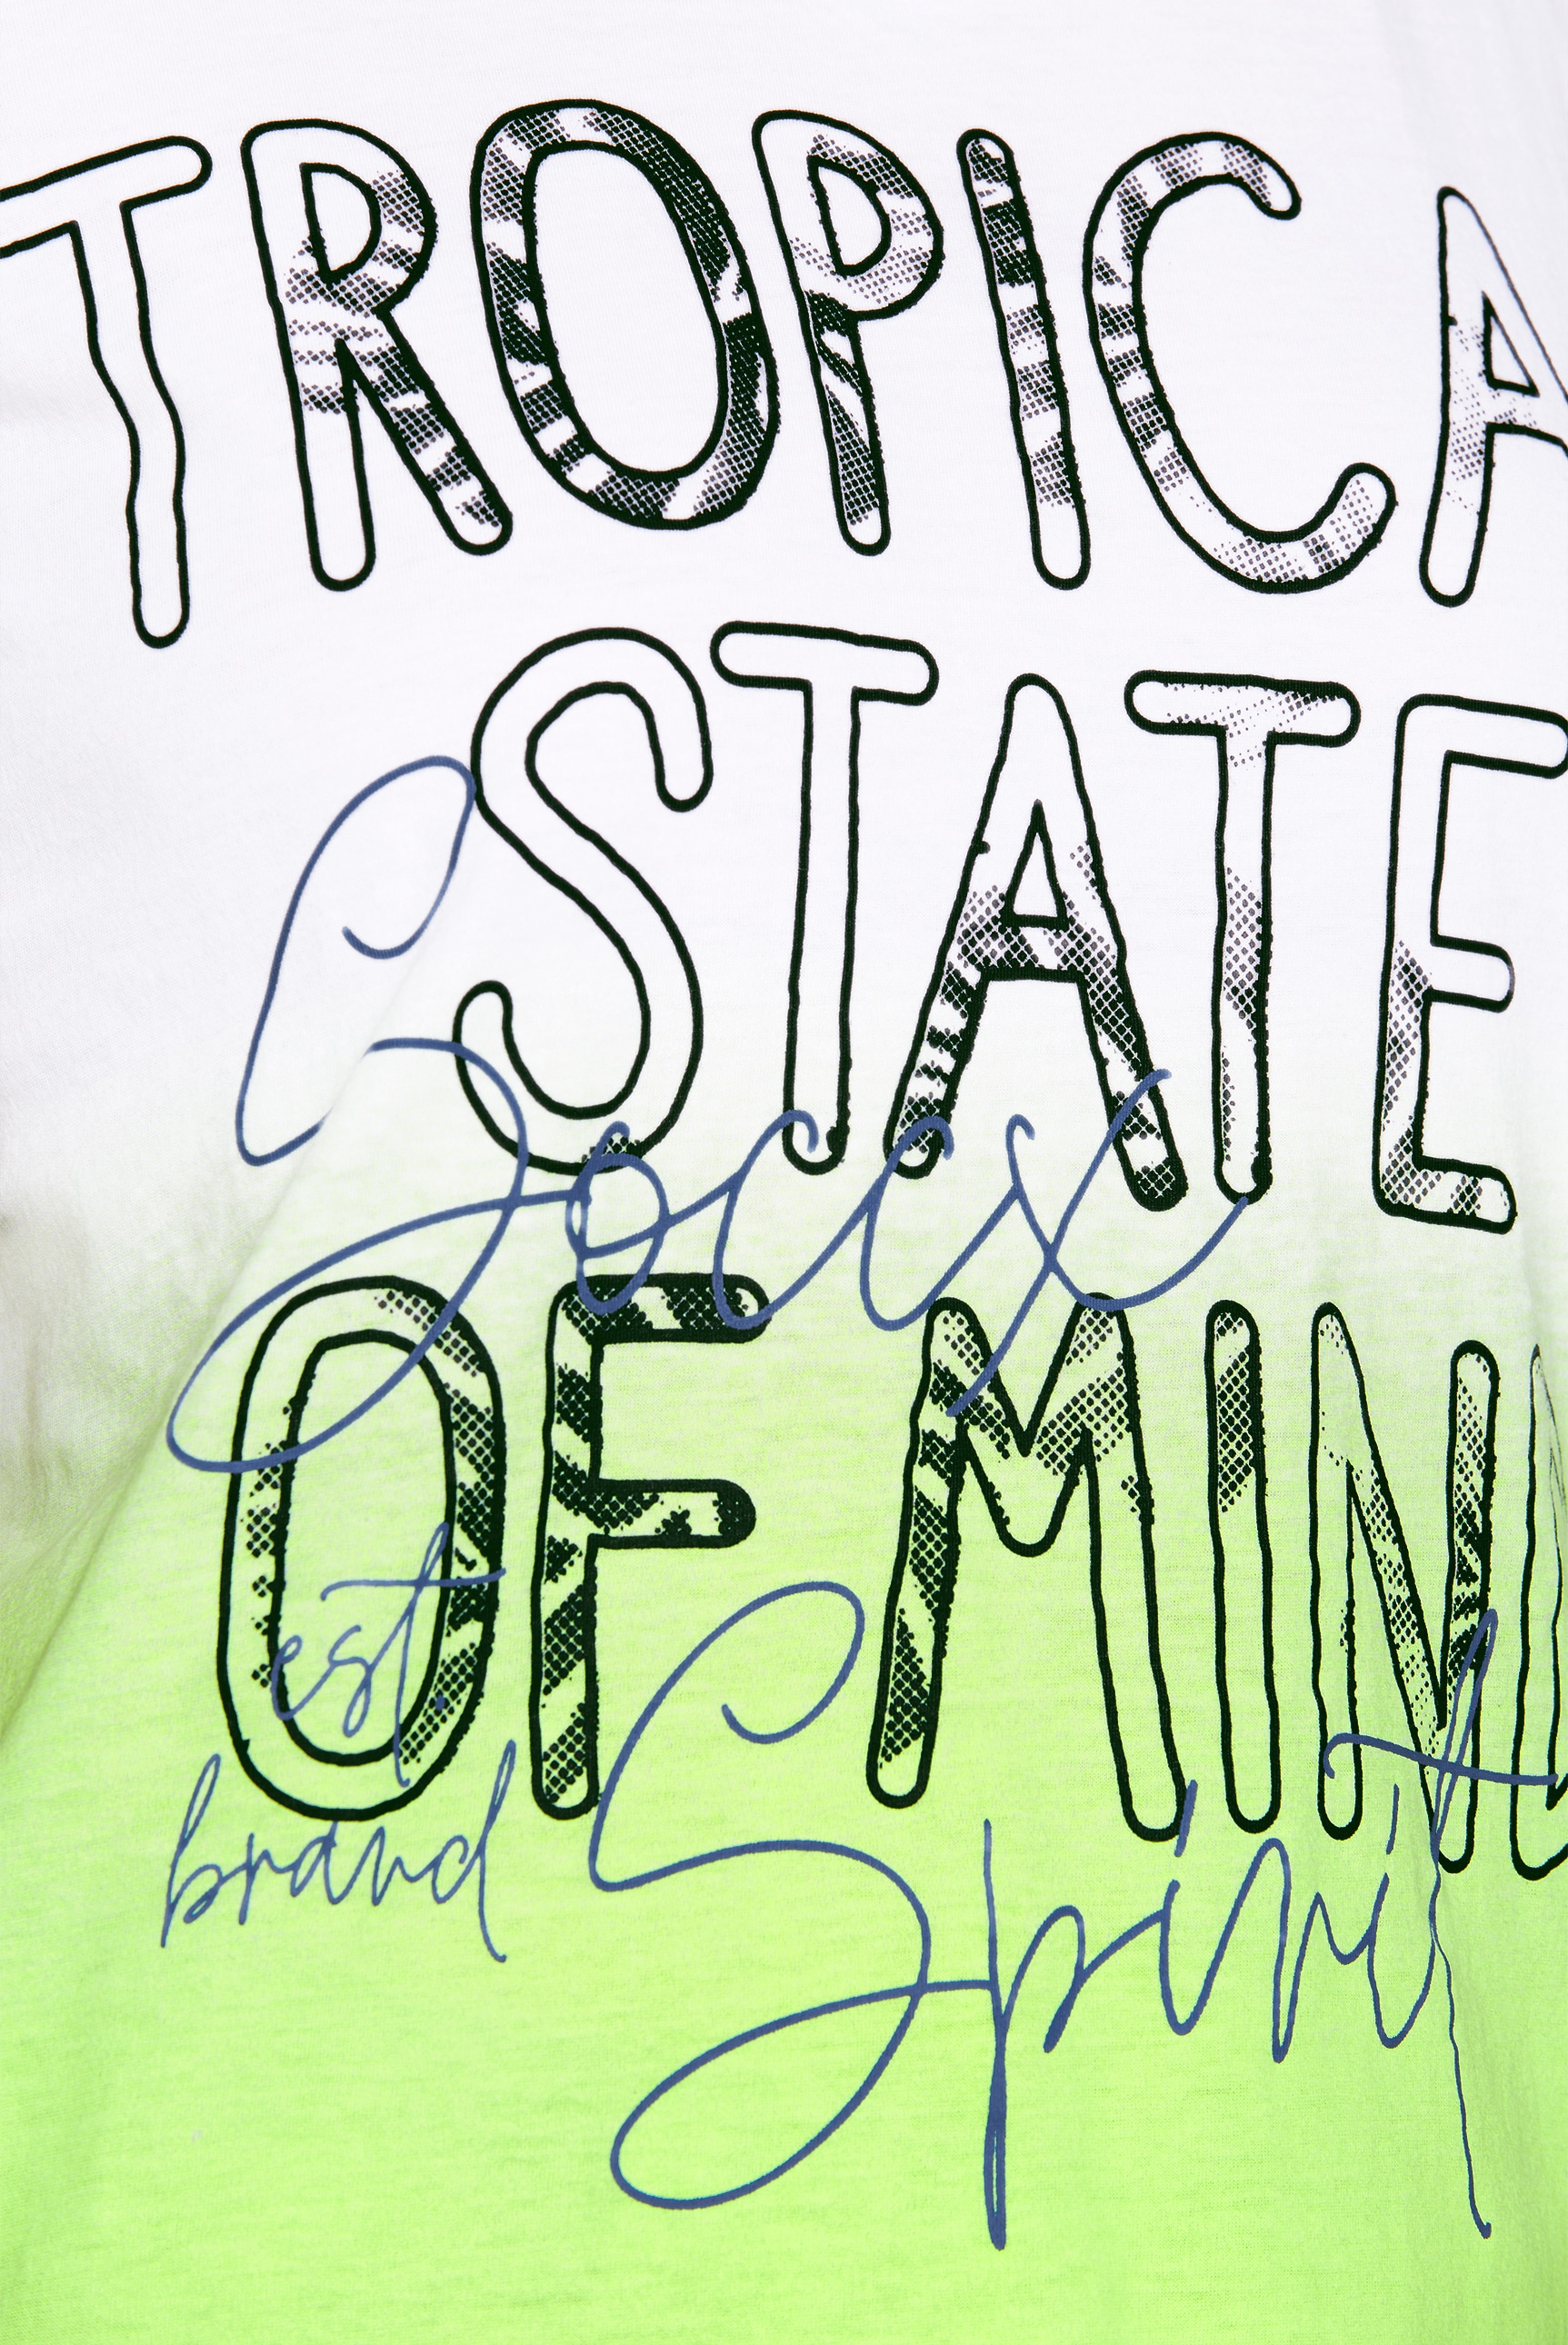 TROPICA
STATE
Soccx
OF MIND
est.
brand
Spirit